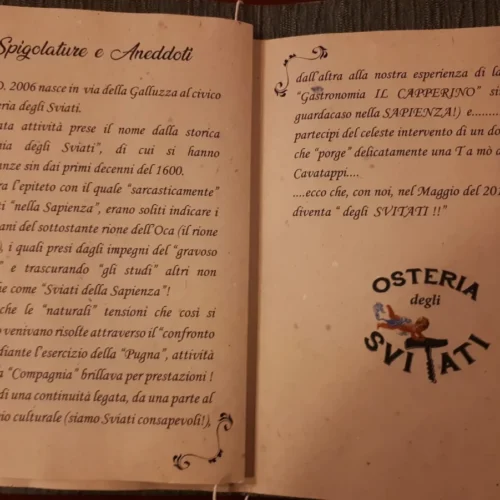 Spigolature e Aneddoti
D. 2006 nasce in via della Galluzza al civico
eria degli Sviati.
ata attività prese il nome dalla storica
nia degli Sviati", di cui si hanno
anze sin dai primi decenni del 1600.
ra l'epiteto con il quale "sarcasticamente"
ti "nella Sapienza", erano soliti indicare i
ani del sottostante rione dell'Oca (il rione
), i quali presi dagli impegni del "gravoso
" e trascurando "gli studi" altri non
che come "Sviati della Sapienza"!
che le "naturali" tensioni che così si
o venivano risolte attraverso il "confronto
diante l'esercizio della "Pugna", attività
a "Compagnia" brillava per prestazioni !
di una continuità legata, da una parte al
rio culturale (siamo Sviati consapevoli!),
dall'altra alla nostra esperienza di la
"Gastronomia IL CAPPERINO" si
guardacaso nella SAPIENZA!) e........
partecipi del celeste intervento di un do
che "porge" delicatamente una T a mò d
Cavatappi....
....ecco che, con noi, nel Maggio del 201
diventa " degli SVITATI !!"
OSTERIA
degli
SVITATI